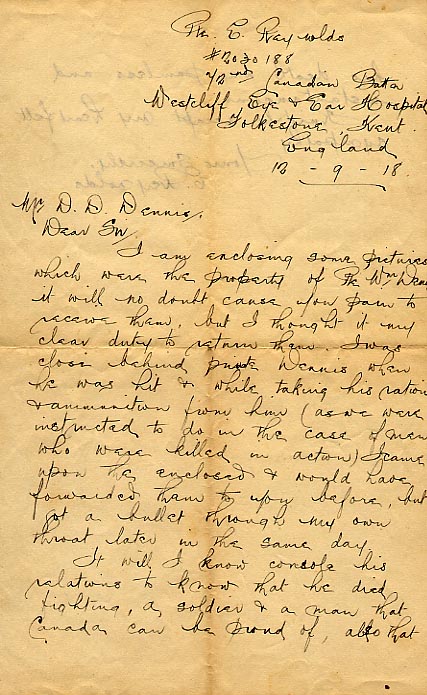 Pte. E. Reynolds
#2030188
72nd Canadian Battn
Westcliff Eye & Ear Hospital
Folkestone, Kent.
England
12 - 9 - 18.
Mr D. D. Dennis,
Dear Sir,
I am enclosing some pictures
which were the property of Pte Wm Denn
it will no doubt cause you pain to
receive them, but I thought it my
clear duty to return them. I was
close behind Dennis when
he was hit & while taking his ration
& ammunition from him (as we were
instructed to do in the case of men
who were killed in action) I came
upon the enclosed & would have
forwarded them to you before, but
got a bullet through my own
throat later in the same day.
It will I know console his
relatives to know that he died
fighting, a soldier & a man that
Canada can be proud of, also that